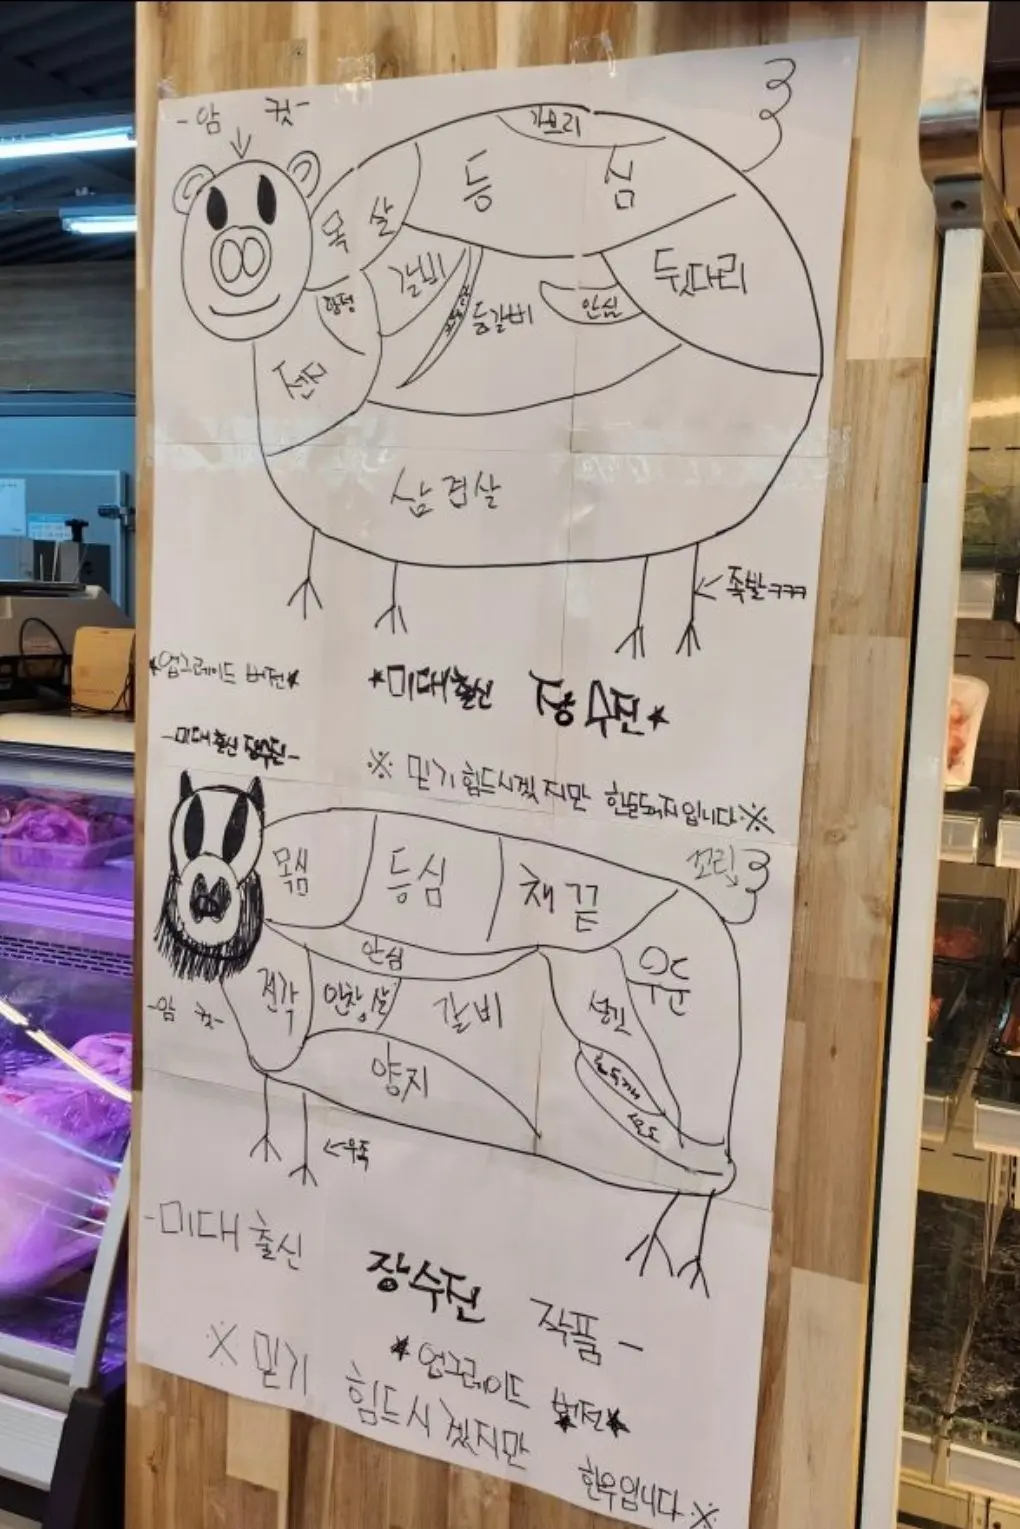 -암 컷-
가브리
등 심
목 살
갈비
항정
등갈비
안심
뒷다리
전지
삼겹살
족발ㅋㅋㅋ
★업그레이드 버전★
★미대출신 장수진★
-미대출신 장수진-
※ 믿기 힘드시겠지만 한돈돼지입니다※
목심
등심
채끝
꼬리
안심
우둔
전각
안창살
갈비
설깃
홍두깨
양지
-암 컷-
←우족
-미대출신 장수진 작품-
★업그레이드 버전★
※ 믿기 힘드시겠지만 한우입니다※